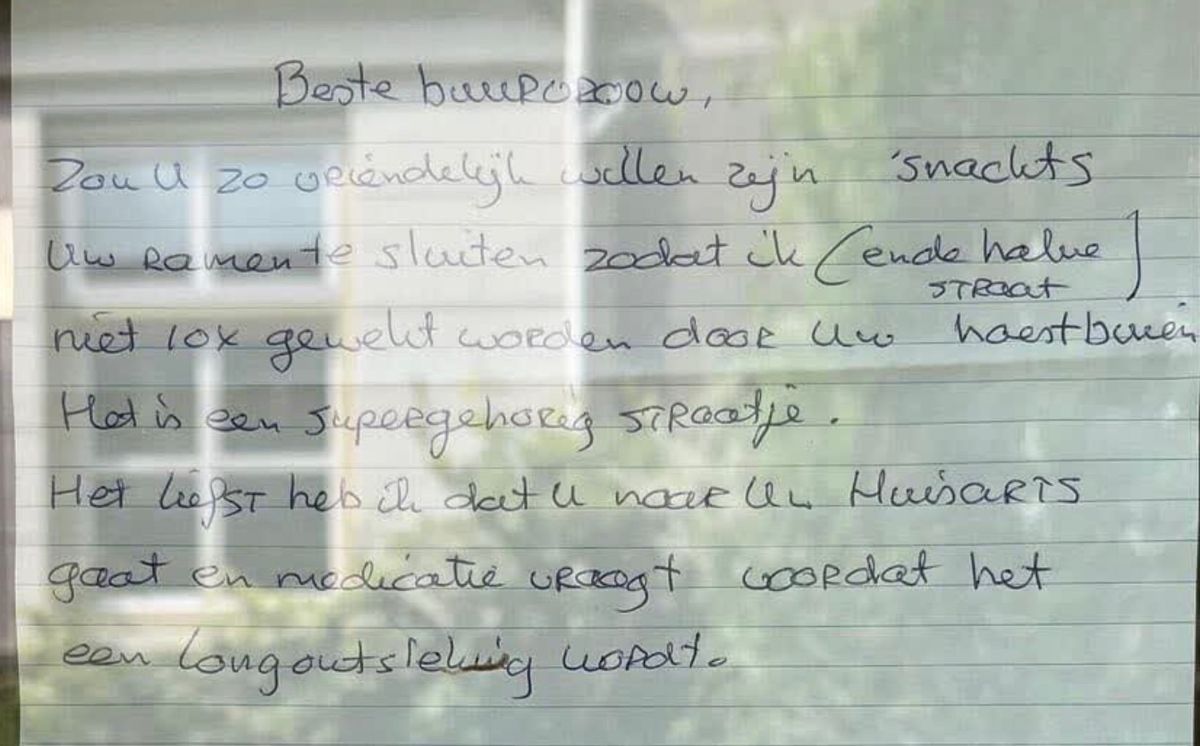 Beste buurvrouw,
Zou U zo vriéndelijk willen zijn 'snachts
Uw ramen te sluiten zodat ik (en de halve
STRaat)
niet 10x gewekt worden door Uw hoestbuien
Het is een supergehorig STRaatje.
Het liefST heb ik dat U naar Uw HuisARTS
gaat en medicatie vraagt voordat het
een longoutsteking wordt.